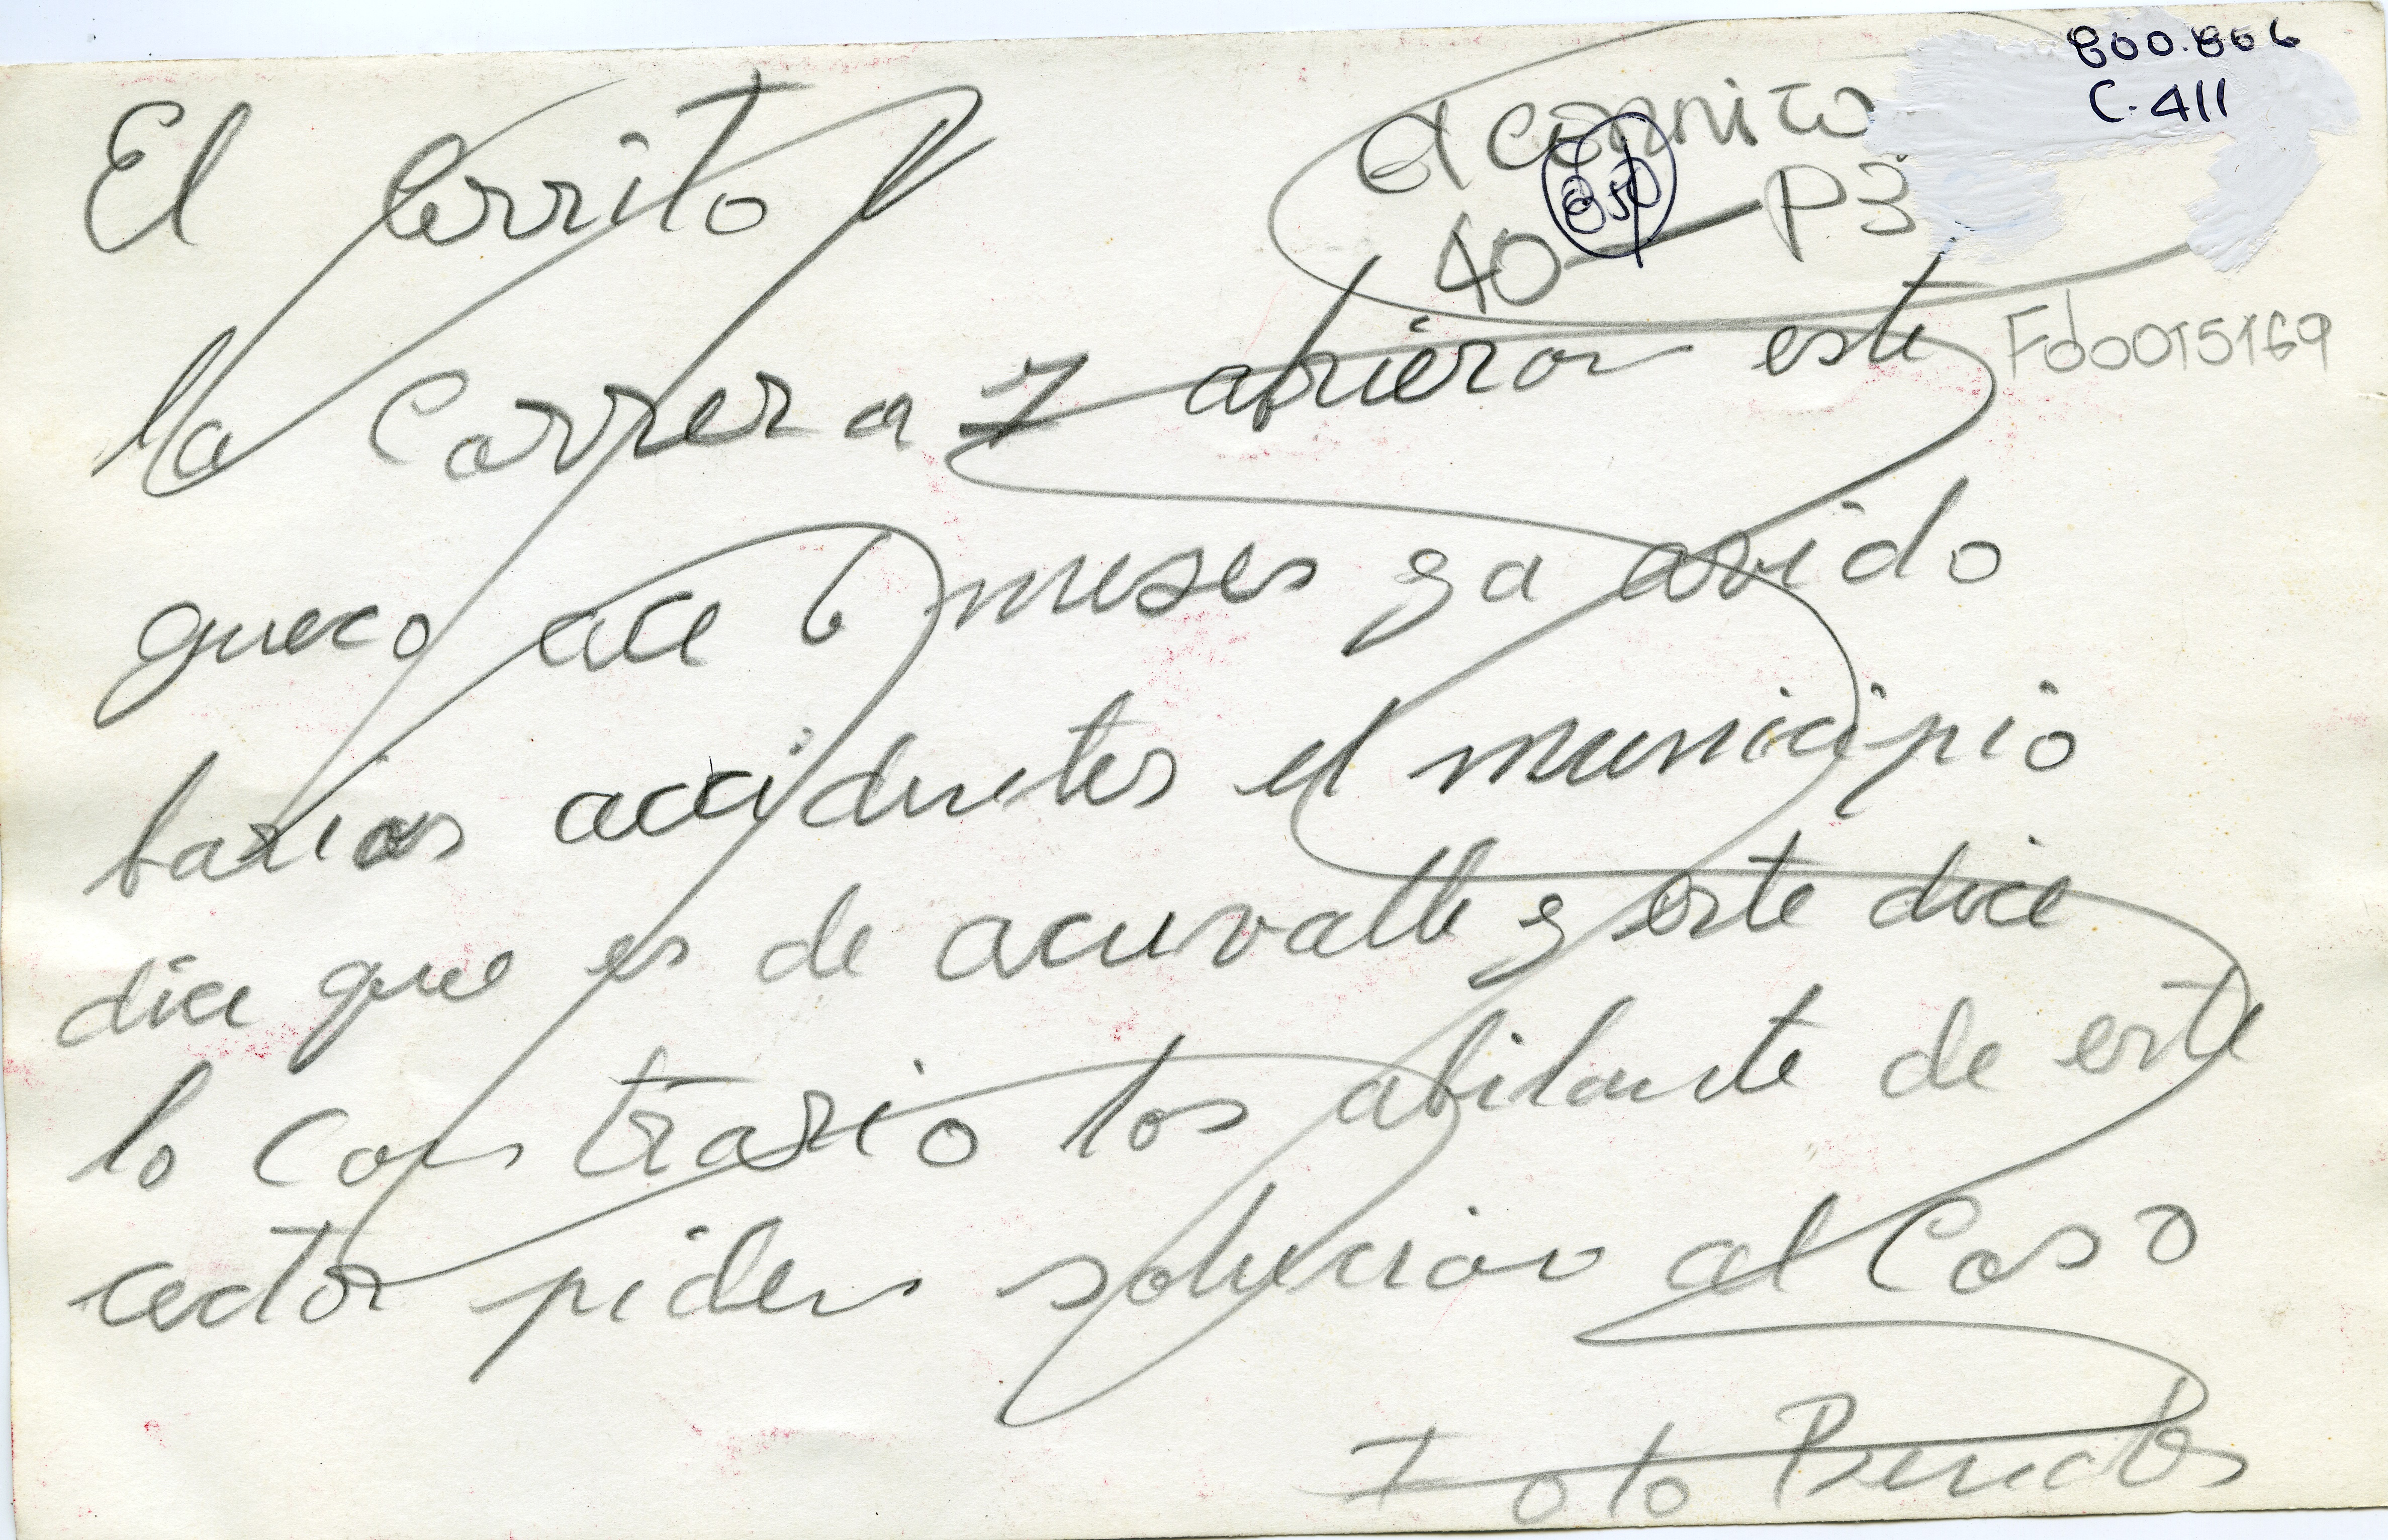 800.806
C-411
El Cerrito V
El corrnito
850
40 — P3
Fdo015169
la Carrera 7 abrieron este
gueco ace 6 meses ya avido
barias accidentes el municipio
dice que es de acuvalle y este dice
lo contrario los abitante de este
cector piden solucion al Caso
Foto